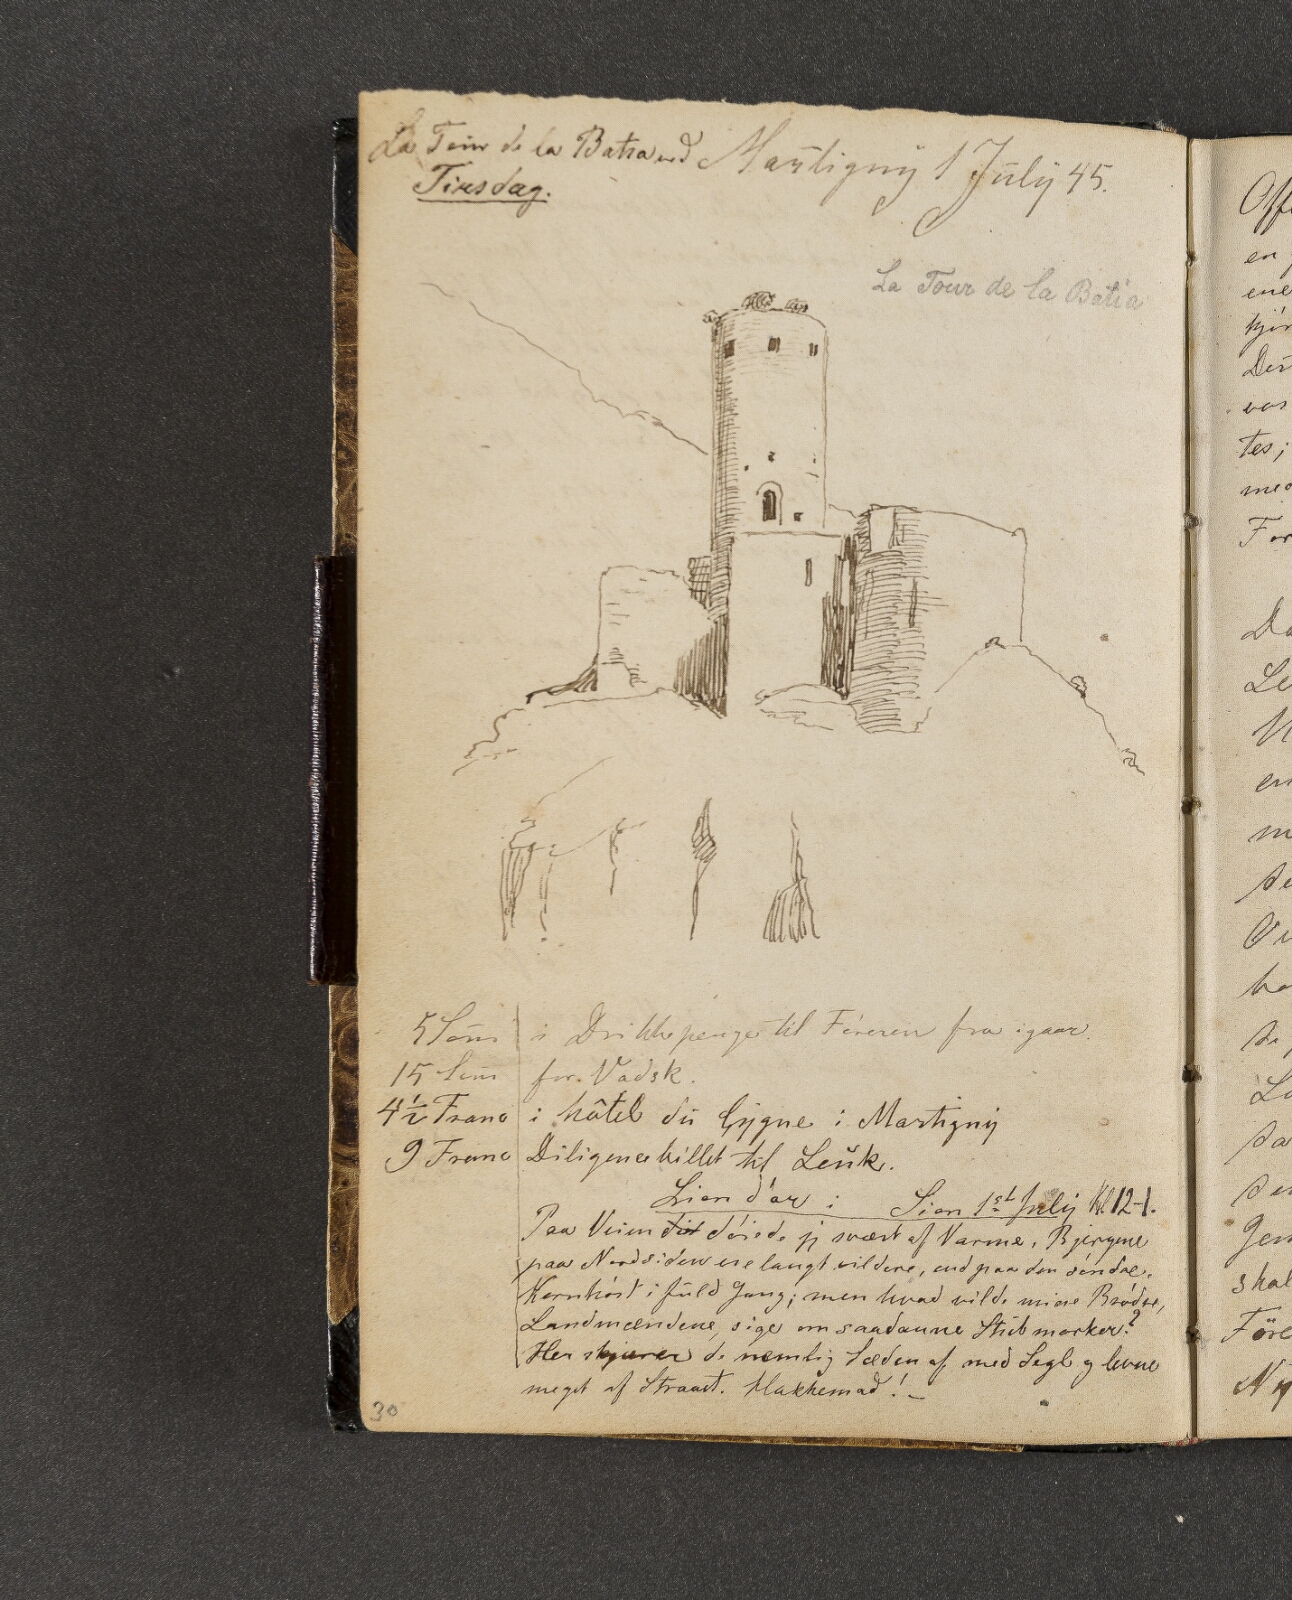 La Tour de la Batia ved Martigny 1 July 45.
Tirsdag.
La Tour de la Batia
5 Sous i Drikkepenge til Föreren fra igaar.
15 Sous for Vadsk.
4½ Franc i hôtel du Cygne i Martigny
9 Franc Diligencebillet til Leuk.
Lion d'or i Sion 1st July Kl 12-1.
Paa Veien döiede jg svært af Varme, Bjergene
paa Nordsiden ere langt vildere, end paa den söndre.
Kornhöst i fuld Gang; men hvad vilde mine Brödre,
Landmændene, sige om saadanne Stubmarker?
Her skjærer de nemlig Sæden af med Segl og levne
meget af Straaet. Hakkemad! –
30